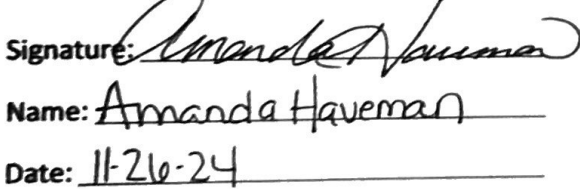 Signature: Amanda Haveman
Name: Amanda Haveman
Date: 11-26-24